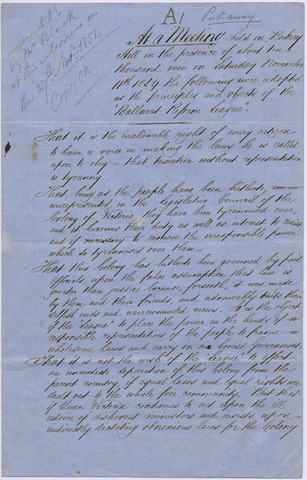 A
Put away
At a Meeting held on Bakery
Hill in the presence of about ten
thousand men on Saturday November
11th 1854 the following were adopted
as the principles and objects of the
"Ballarat Reform League".
That it is the inalienable right of every citizen
to have a voice in making the laws he is called
upon to obey – that taxation without representation
is tyranny
That, being as the people have been hitherto, un-
unrepresented, in the Legislative Council of the
Colony of Victoria, they have been tyrannised over,
and it becomes their duty as well as interest to resist
and if necessary to remove the irresponsible power
which so tyrannises over them.
That this Colony has hitherto been governed by paid
Officials, upon the false assumption that law is
greater than justice because, forsooth, it was made
by them and their friends, and admirably suits their
selfish ends and narrowminded views. It is the object
of the "League" to place the power in the hands of
responsible representatives of the people to frame
wholesome laws and carry on an honest Government.
That it is not the wish of the "League" to effect
an immediate separation of this Colony from the
parent country, if equal laws and equal rights are
dealt out to the whole free community. But that
if Queen Victoria continues to act upon the ill
advice of dishonest ministers and insists upon
indirectly dictating obnoxious laws for the Colony